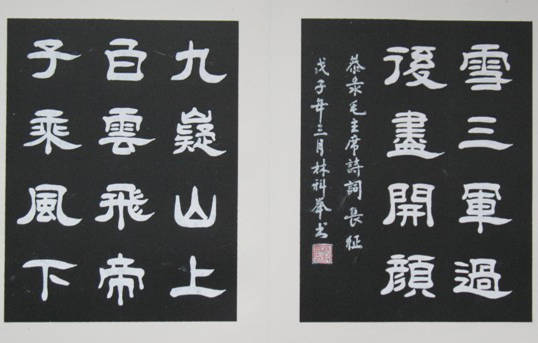 雪三軍過
後盡開顏
恭录毛主席詩詞長征
戊子年三月林科书
九嶷山上
白雲飛帝
子乘風下